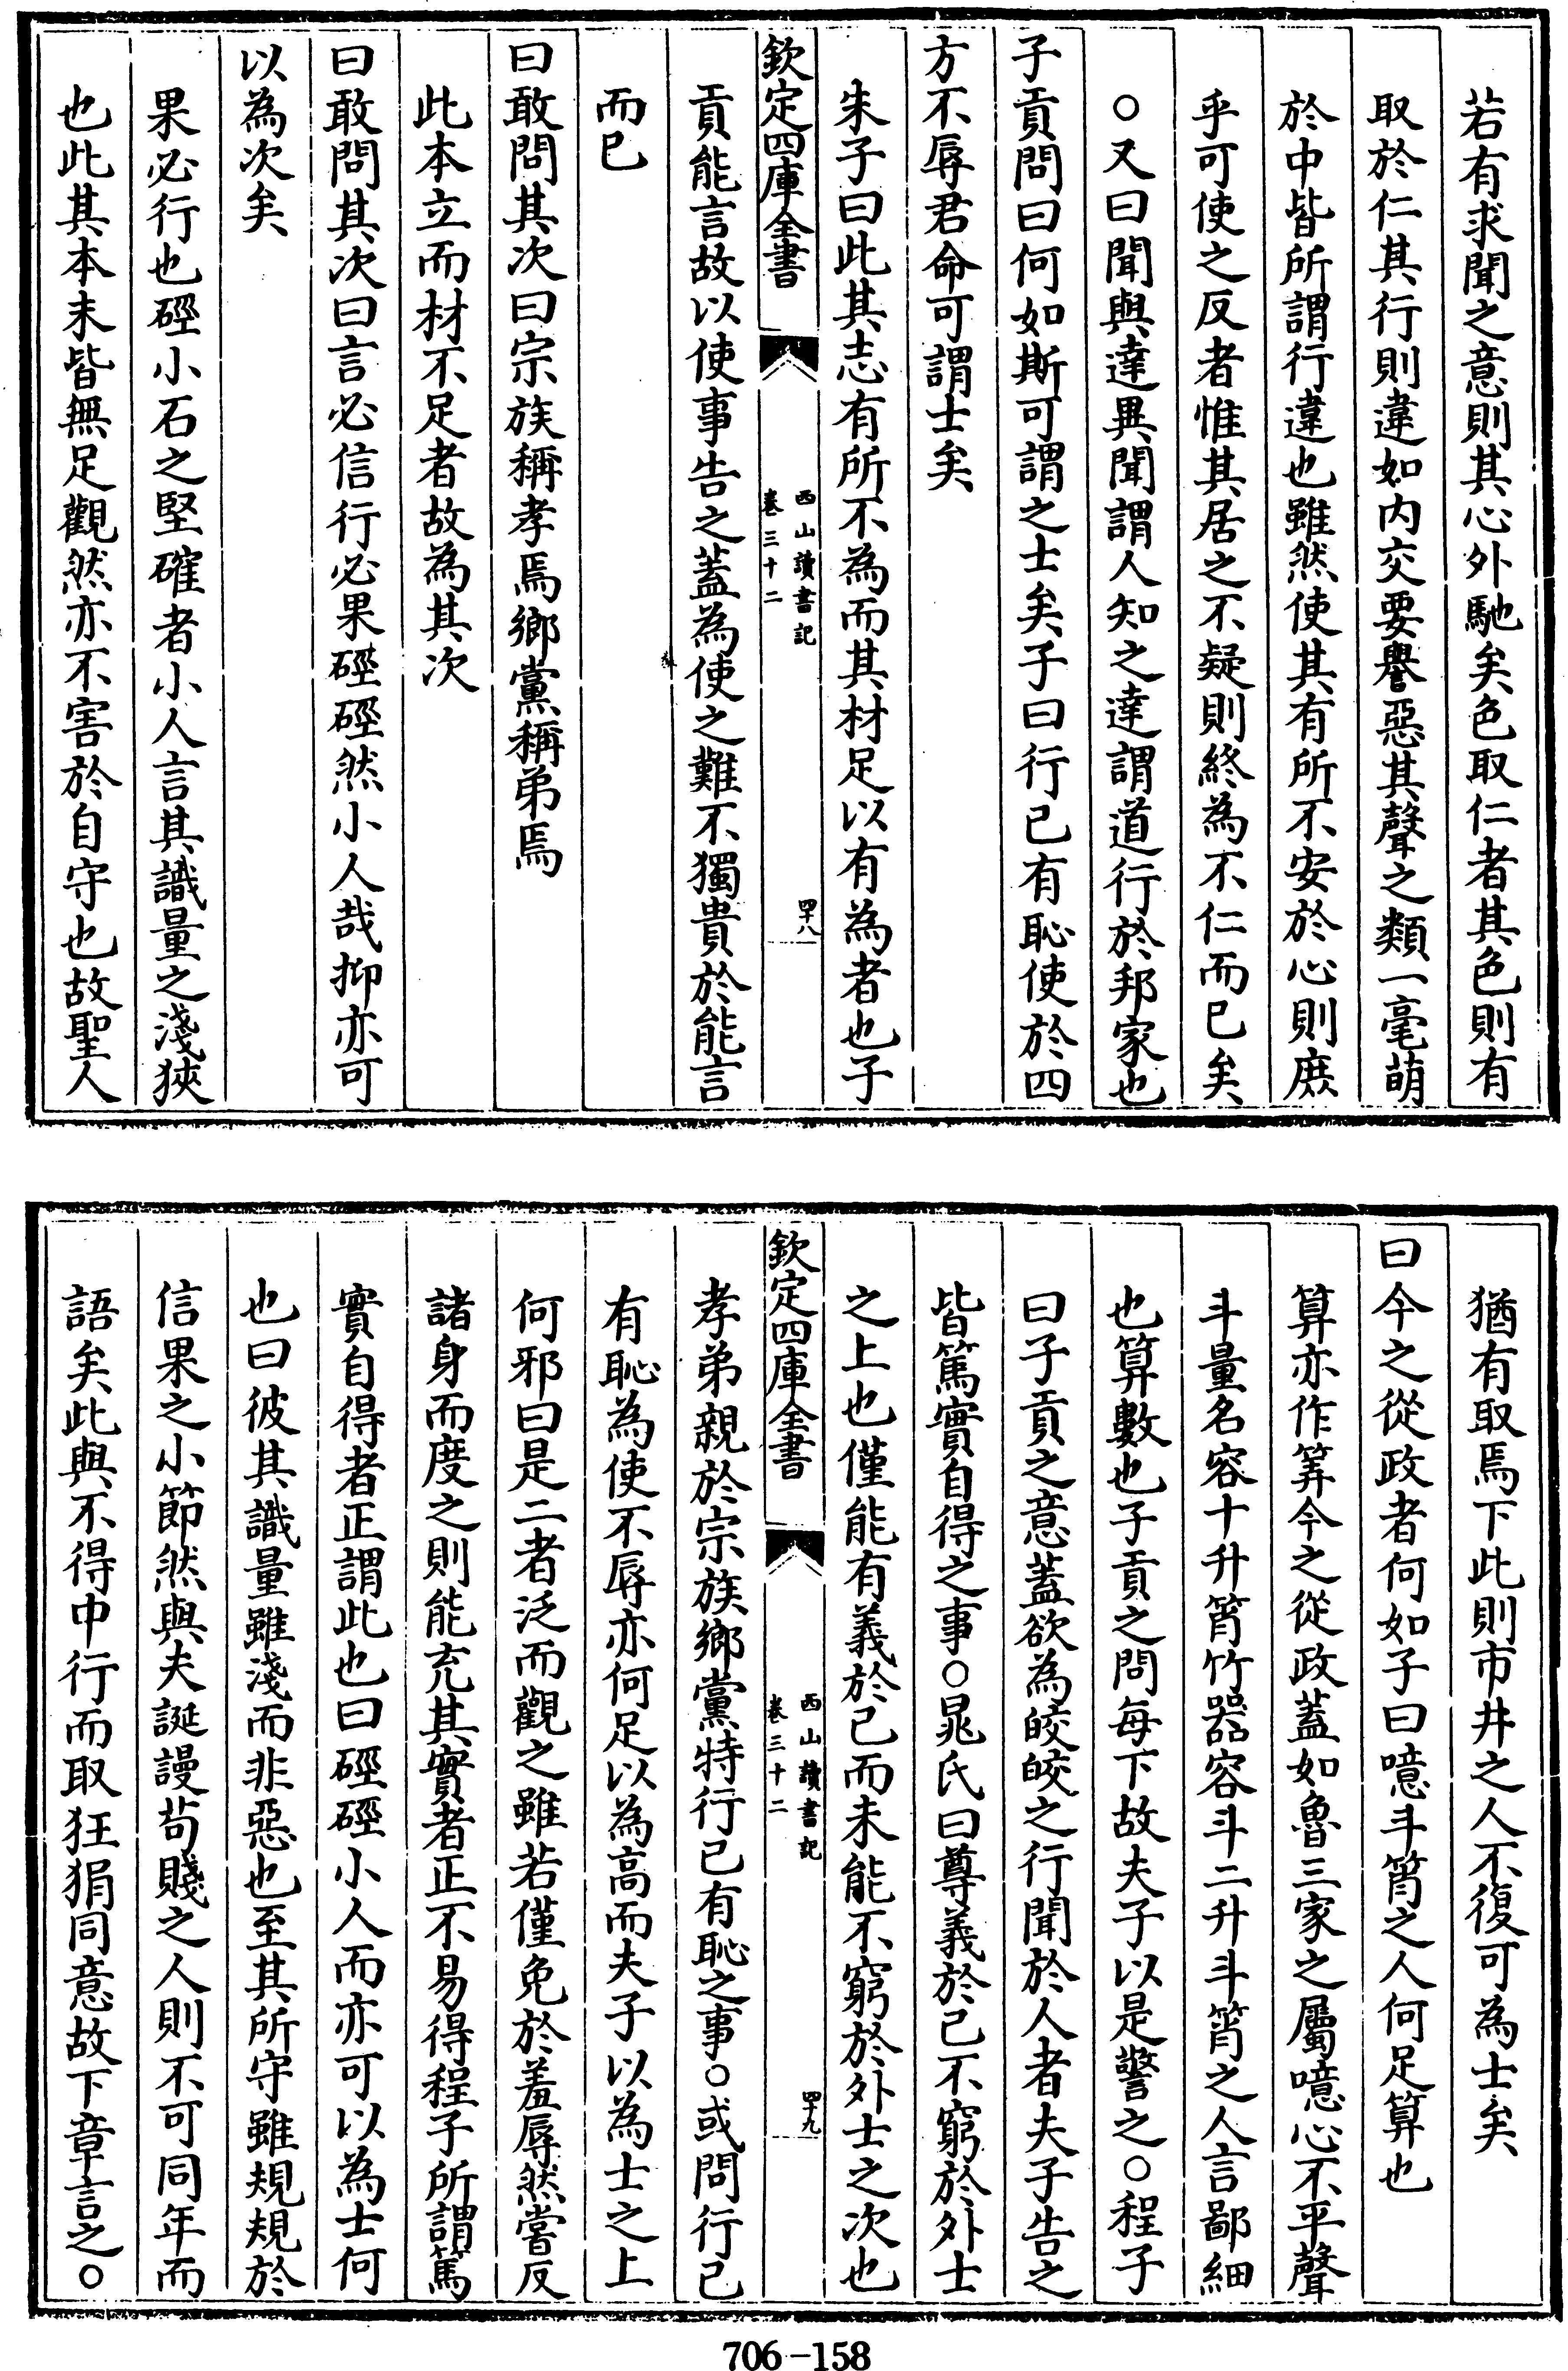 若有求聞之意則其心外馳矣色取仁者其色則有
取於仁其行則違如内交要譽惡其聲之類一毫萌
於中皆所謂行違也雖然使其有所不安於心則庶
乎可使之反者惟其居之不疑則終為不仁而已矣
○又曰聞與達異聞謂人知之達謂道行於邦家也
子貢問曰何如斯可謂之士矣子曰行已有恥使於四
方不辱君命可謂士矣
朱子曰此其志有所不為而其材足以有為者也子
欽定四庫全書
西山讀書記
卷三十二
四十八
貢能言故以使事告之蓋為使之難不獨貴於能言
而已
曰敢問其次曰宗族稱孝焉鄉黨稱弟焉
此本立而材不足者故為其次
曰敢問其次曰言必信行必果硜硜然小人哉抑亦可
以為次矣
果必行也硜小石之堅確者小人言其識量之淺狹
也此其本末皆無足觀然亦不害於自守也故聖人
猶有取焉下此則市井之人不復可為士矣
曰今之從政者何如子曰噫斗筲之人何足算也
算亦作筭今之從政蓋如魯三家之屬噫心不平聲
斗量名容十升筲竹器容斗二升斗筲之人言鄙細
也算數也子貢之問每下故夫子以是警之○程子
曰子貢之意蓋欲為皎皎之行聞於人者夫子告之
皆篤實自得之事○晁氏曰尊義於已不窮於外士
之上也僅能有義於己而未能不窮於外士之次也
欽定四庫全書
西山讀書記
卷三十二
四十九
孝弟親於宗族鄉黨特行已有恥之事○或問行已
有恥為使不辱亦何足以為高而夫子以為士之上
何邪曰是二者泛而觀之雖若僅免於羞辱然嘗反
諸身而度之則能充其實者正不易得程子所謂篤
實自得者正謂此也曰硜硜小人而亦可以為士何
也曰彼其識量雖淺而非惡也至其所守雖規規於
信果之小節然與夫誕謾苟賤之人則不可同年而
語矣此與不得中行而取狂狷同意故下章言之○
706-158